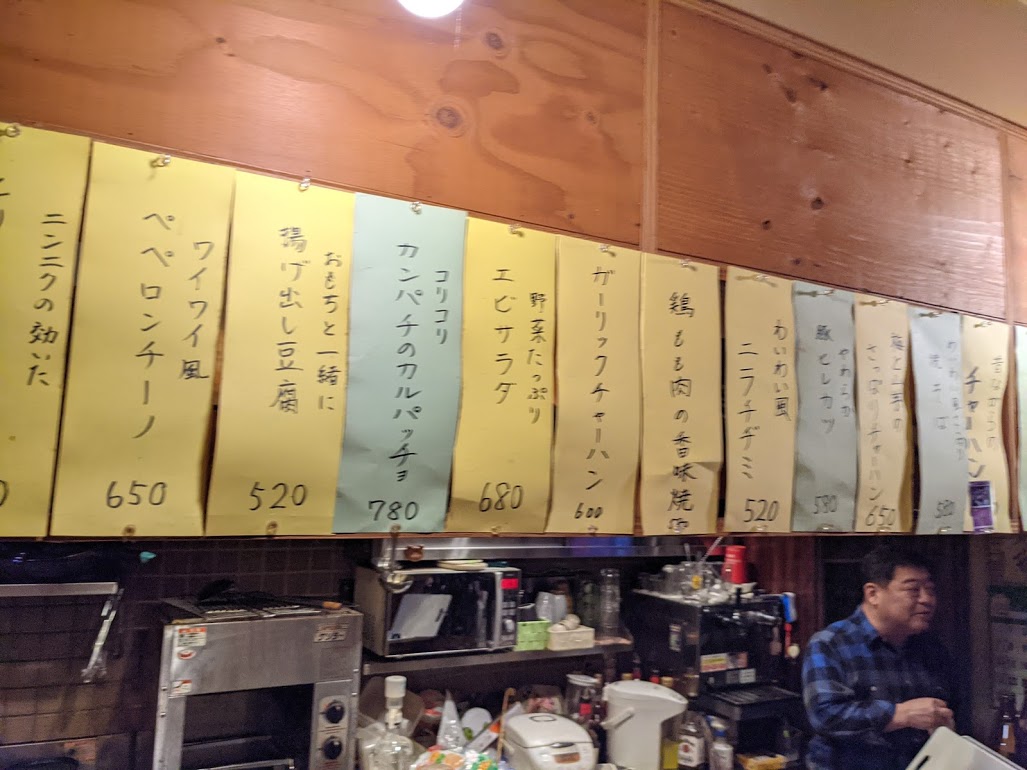 ニンニクの効いた
ワイワイ風
ペペロンチーノ
650
おもちと一緒に
揚げ出し豆腐
520
コリコリ
カンパチのカルパッチョ
780
野菜たっぷり
エビサラダ
680
ガーリックチャーハン
600
鶏もも肉の香味焼
わいわい風
ニラチヂミ
520
やわらか
豚ヒレカツ
580
さっぱりチャーハン
650
焼そば
580
昔ながらの
チャーハン